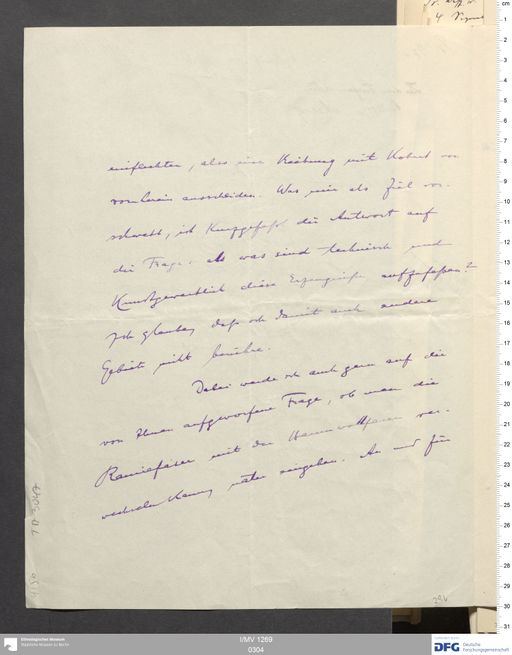 einflechten, also eine Reibung mit Kobert von
vornherein ausscheiden. Was mir als Ziel vor-
schwebt, ist kurzgefaßt die Antwort auf
die Frage: als was sind technisch und
Kunstgewerblich diese Erzeugnisse aufzufassen?
Ich glaube, daß ich damit auch andere
Gebiete nicht berühre.
Dabei werde ich auch gern auf die
von Ihnen aufgeworfene Frage, ob man die
Ramiefaser mit der
wechseln kann, näher eingehen. An und für
I/MV 1269
0304
Ethnologisches Museum
Staatliche Museen zu Berlin
DFG Deutsche
Forschungsgemeinschaft